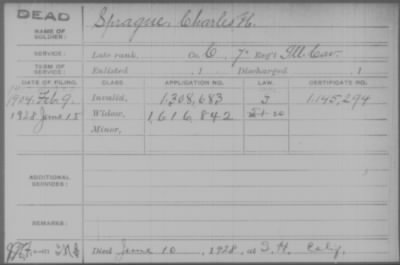 DEAD
NAME OF SOLDIER: Sprague, Charles H.
SERVICE: Late rank, Co. C, 7" Reg't Ill. Cav.
TERM OF SERVICE: Enlisted , 1 Discharged , 1
DATE OF FILING. CLASS. APPLICATION NO. LAW. CERTIFICATE NO.
1904, Feb. 9. Invalid, 1,308,683 1,145,294
1928 June 15 Widow, 1616,842 5-1-20
Minor,
ADDITIONAL SERVICES:
REMARKS:
Died June 10, 1928, at S. H. Calif.